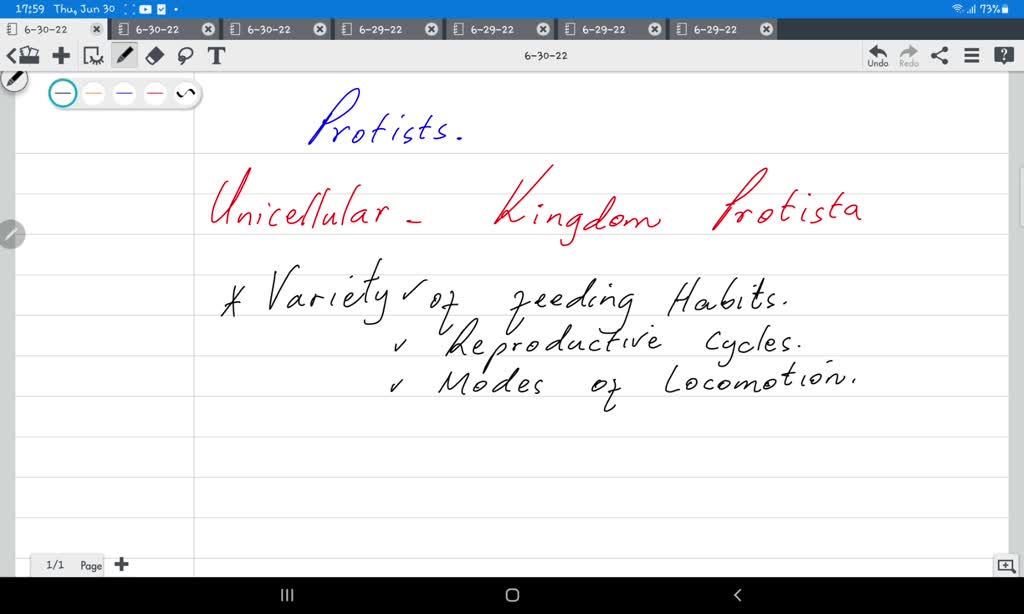 17:59 Thu, Jun 30 73%
6-30-22 6-30-22 6-30-22 6-29-22 6-29-22 6-29-22 6-29-22
T 6-30-22 Undo Redo ?
Protists.
Unicellular - Kingdom Protista
* Variety ✓ of feeding Habits.
✓ Reproductive Cycles.
✓ Modes of Locomotion.
1/1 Page +